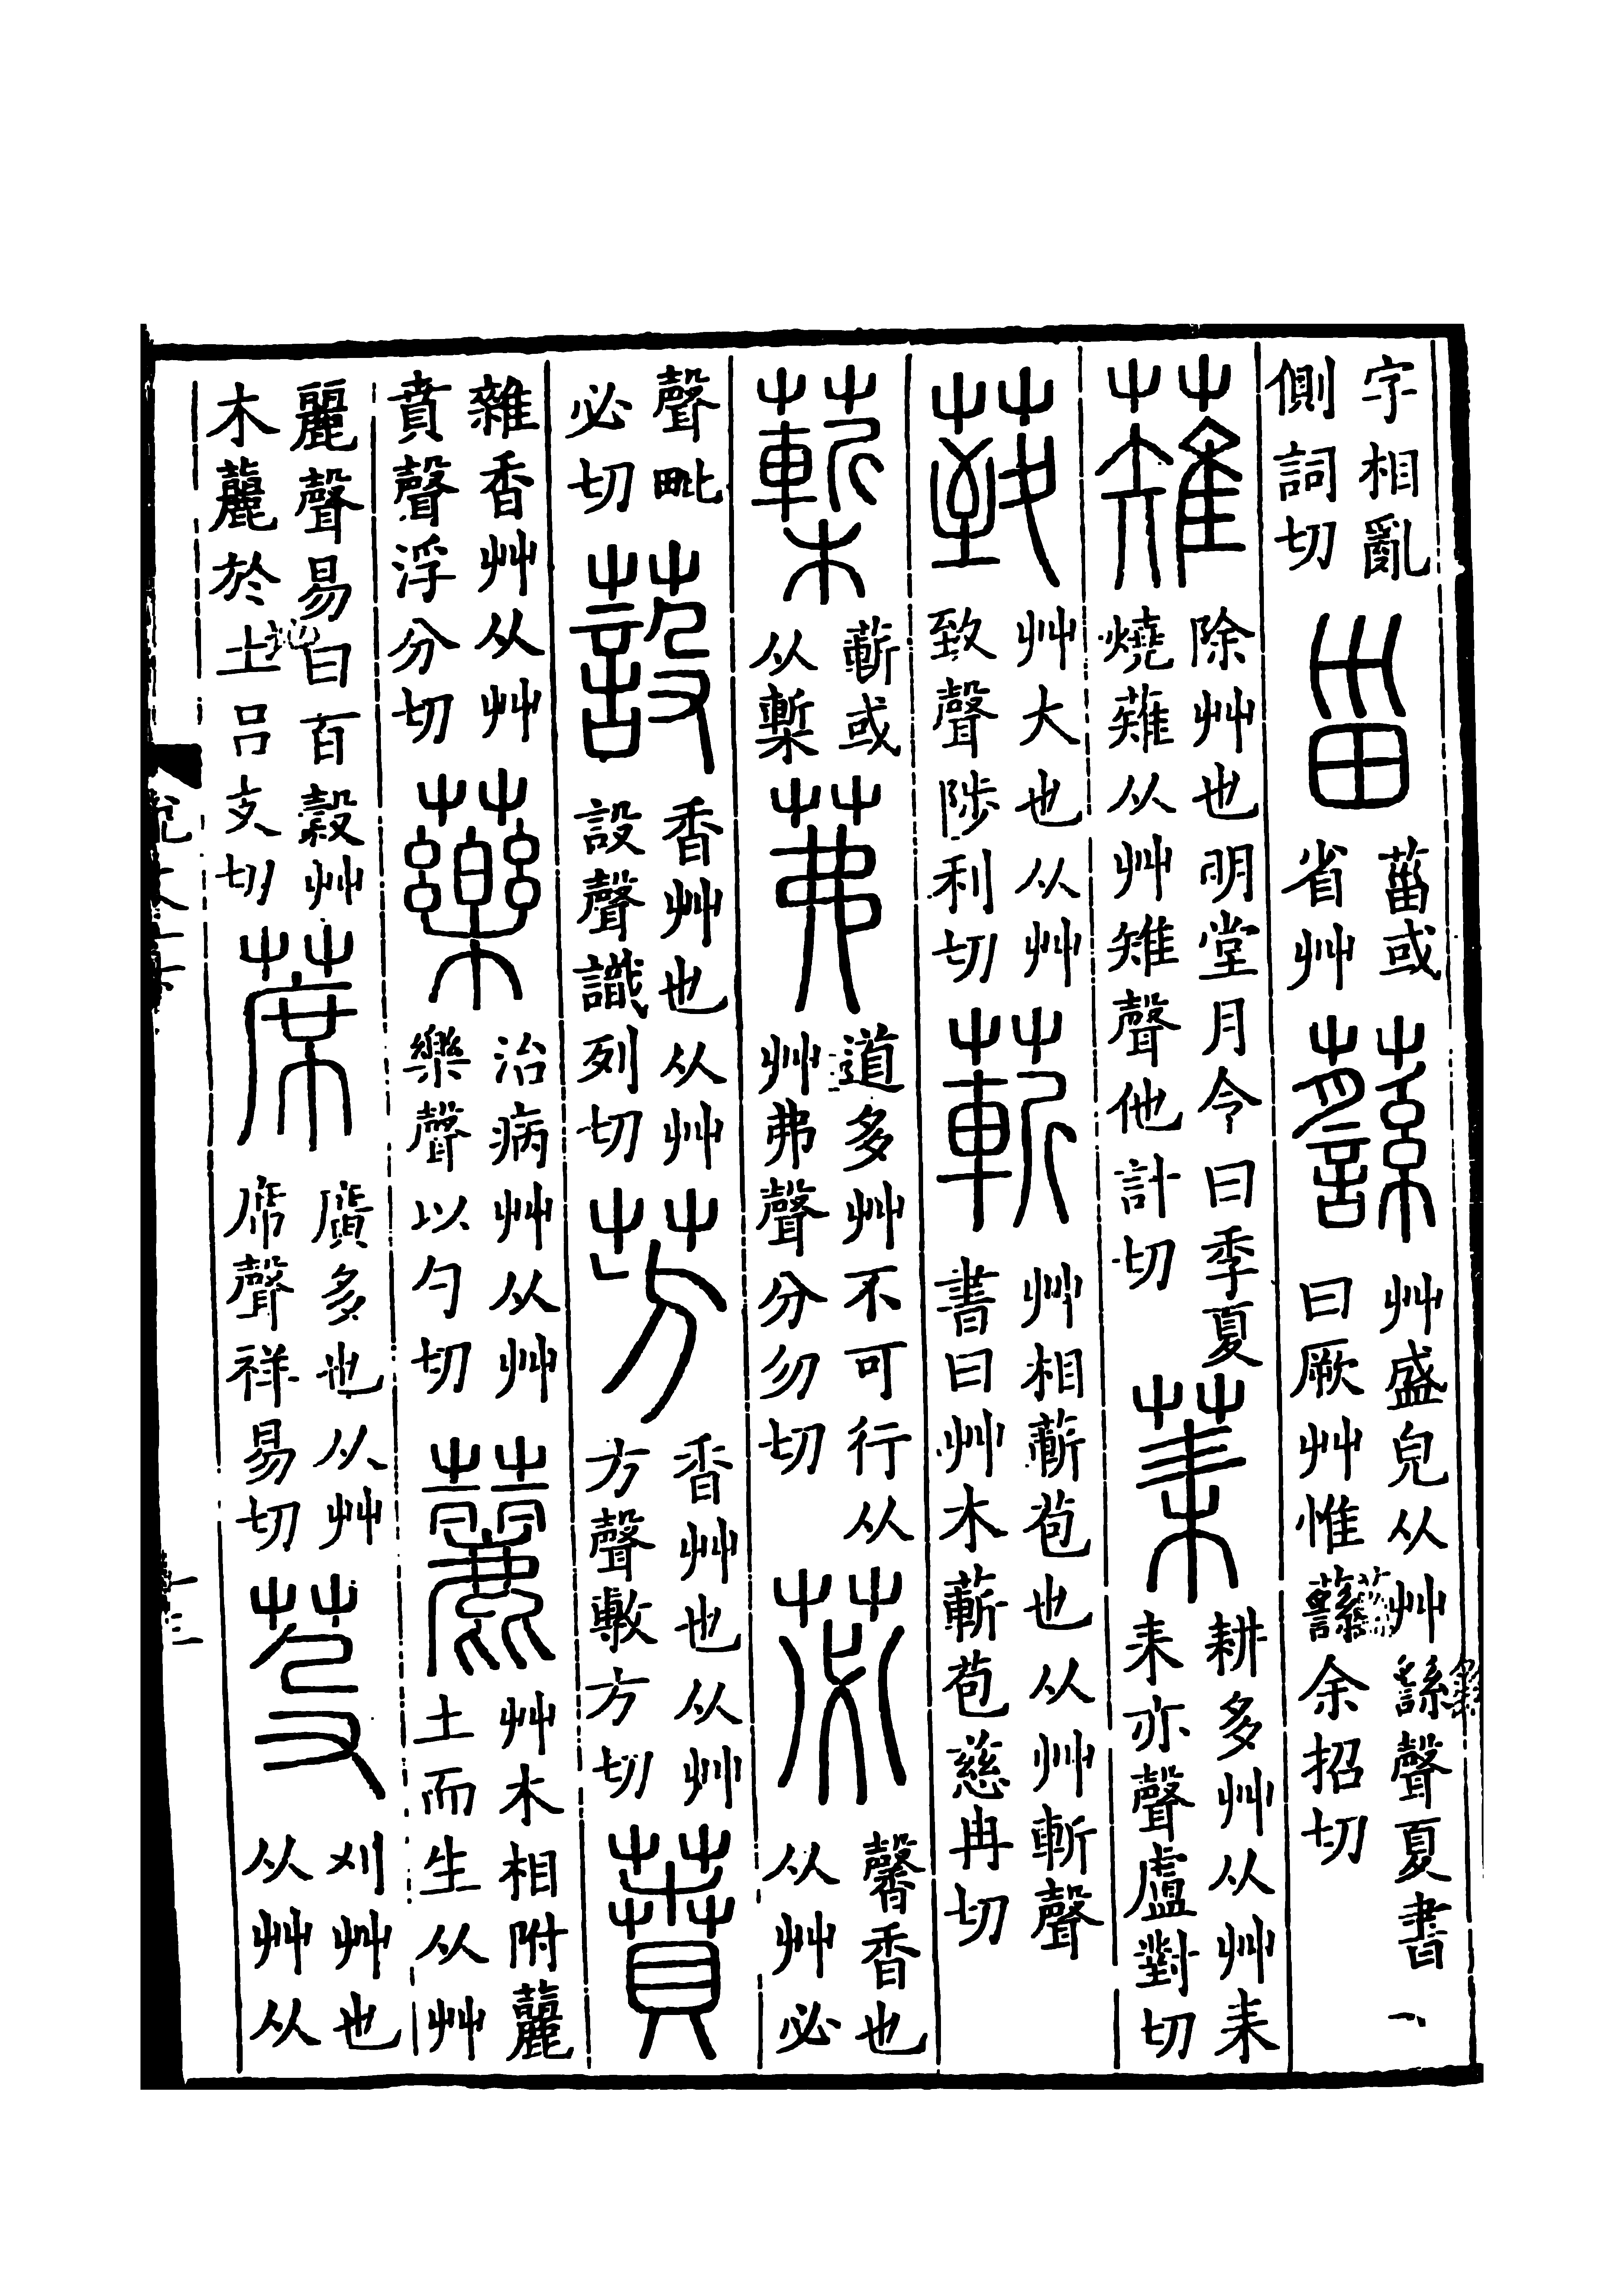 字相亂
側詞切
甾
葘或
省艸
蘨
艸盛皃从艸繇聲夏書
曰厥艸惟蘨余招切
薙
除艸也明堂月令曰季夏
燒薙从艸雉聲他計切
茦
耕多艸从艸耒
耒亦聲盧對切
䓌
艸大也从艸
致聲陟利切
蔪
艸相蔪苞也从艸斬聲
書曰艸木蔪苞慈冉切
蔪或
从槧
茀
道多艸不可行从
艸弗聲分勿切
苾
馨香也
从艸必
聲毗
必切
蔎
香艸也从艸
設聲識列切
芳
香艸也从艸
方聲敷方切
蕡
雜香艸从艸
賁聲浮分切
藥
治病艸从艸
樂聲以勺切
䕻
艸木相附䕻
土而生从艸
麗聲易曰百穀艸
木䕻於土吕支切
蓆
廣多也从艸
席聲祥易切
芟
刈艸也
从艸从